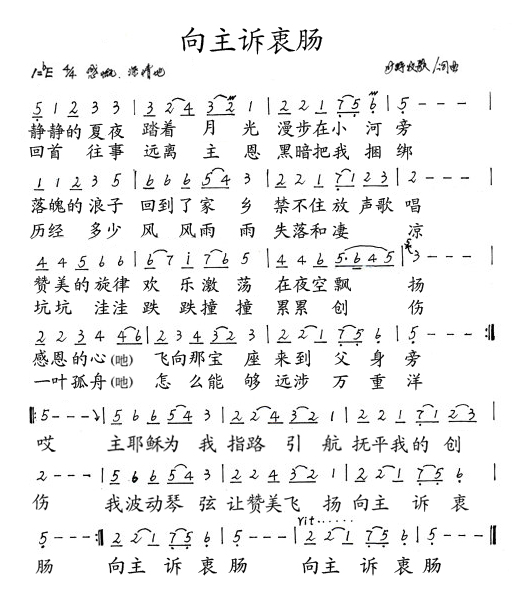 向主诉衷肠
1=bE 4/4
5 1 2 3 3 2 4 3 4 3 2 1 2 2 1 7 5 6 5 - - -
静静的夏夜 踏着 月 光 漫步在小 河 旁
回首 往事 远离 主 恩 黑暗把我 捆 绑
1 1 2 3 5 6 6 6 5 4 3 2 2 2 1 7 1 2 3 2 - - -
落魄的浪子 回到了家 乡 禁不住放声歌 唱
历经 多少 风 风雨 雨 失落和凄 凉
4 4 5 6 6 6 7 i 7 6 5 4 4 6 5·6 4 5 3 - - -
赞美的旋律 欢 乐激 荡 在夜空飘 扬
坑坑 洼洼 跌 跌撞 撞 累累 创 伤
2 2 3 4 4 6 2 3 4 3 2 2 2 2 1 7 5 5 - - -
感恩的心(吔) 飞向那宝 座 来到 父 身 旁
一叶孤舟(吔) 怎 么能 够 远涉 万 重 洋
5 - - - 5 6 6 5 4 3 2 2 4 3 2 1 2 2 1 7 1 2 3
哎 主耶稣为 我 指路 引 航 抚平我的 创
2 - - - 5 6 6 5 4 3 2 2 4 3 2 1 2 2 1 7 5 6
伤 我波动琴 弦 让赞美飞 扬 向主 诉 衷
rit······
5 - - - 2 2 1 7 5 6 5 - - - 2 2 1 7 5 6 5 - - -
肠 向主 诉 衷 肠 向主 诉 衷 肠